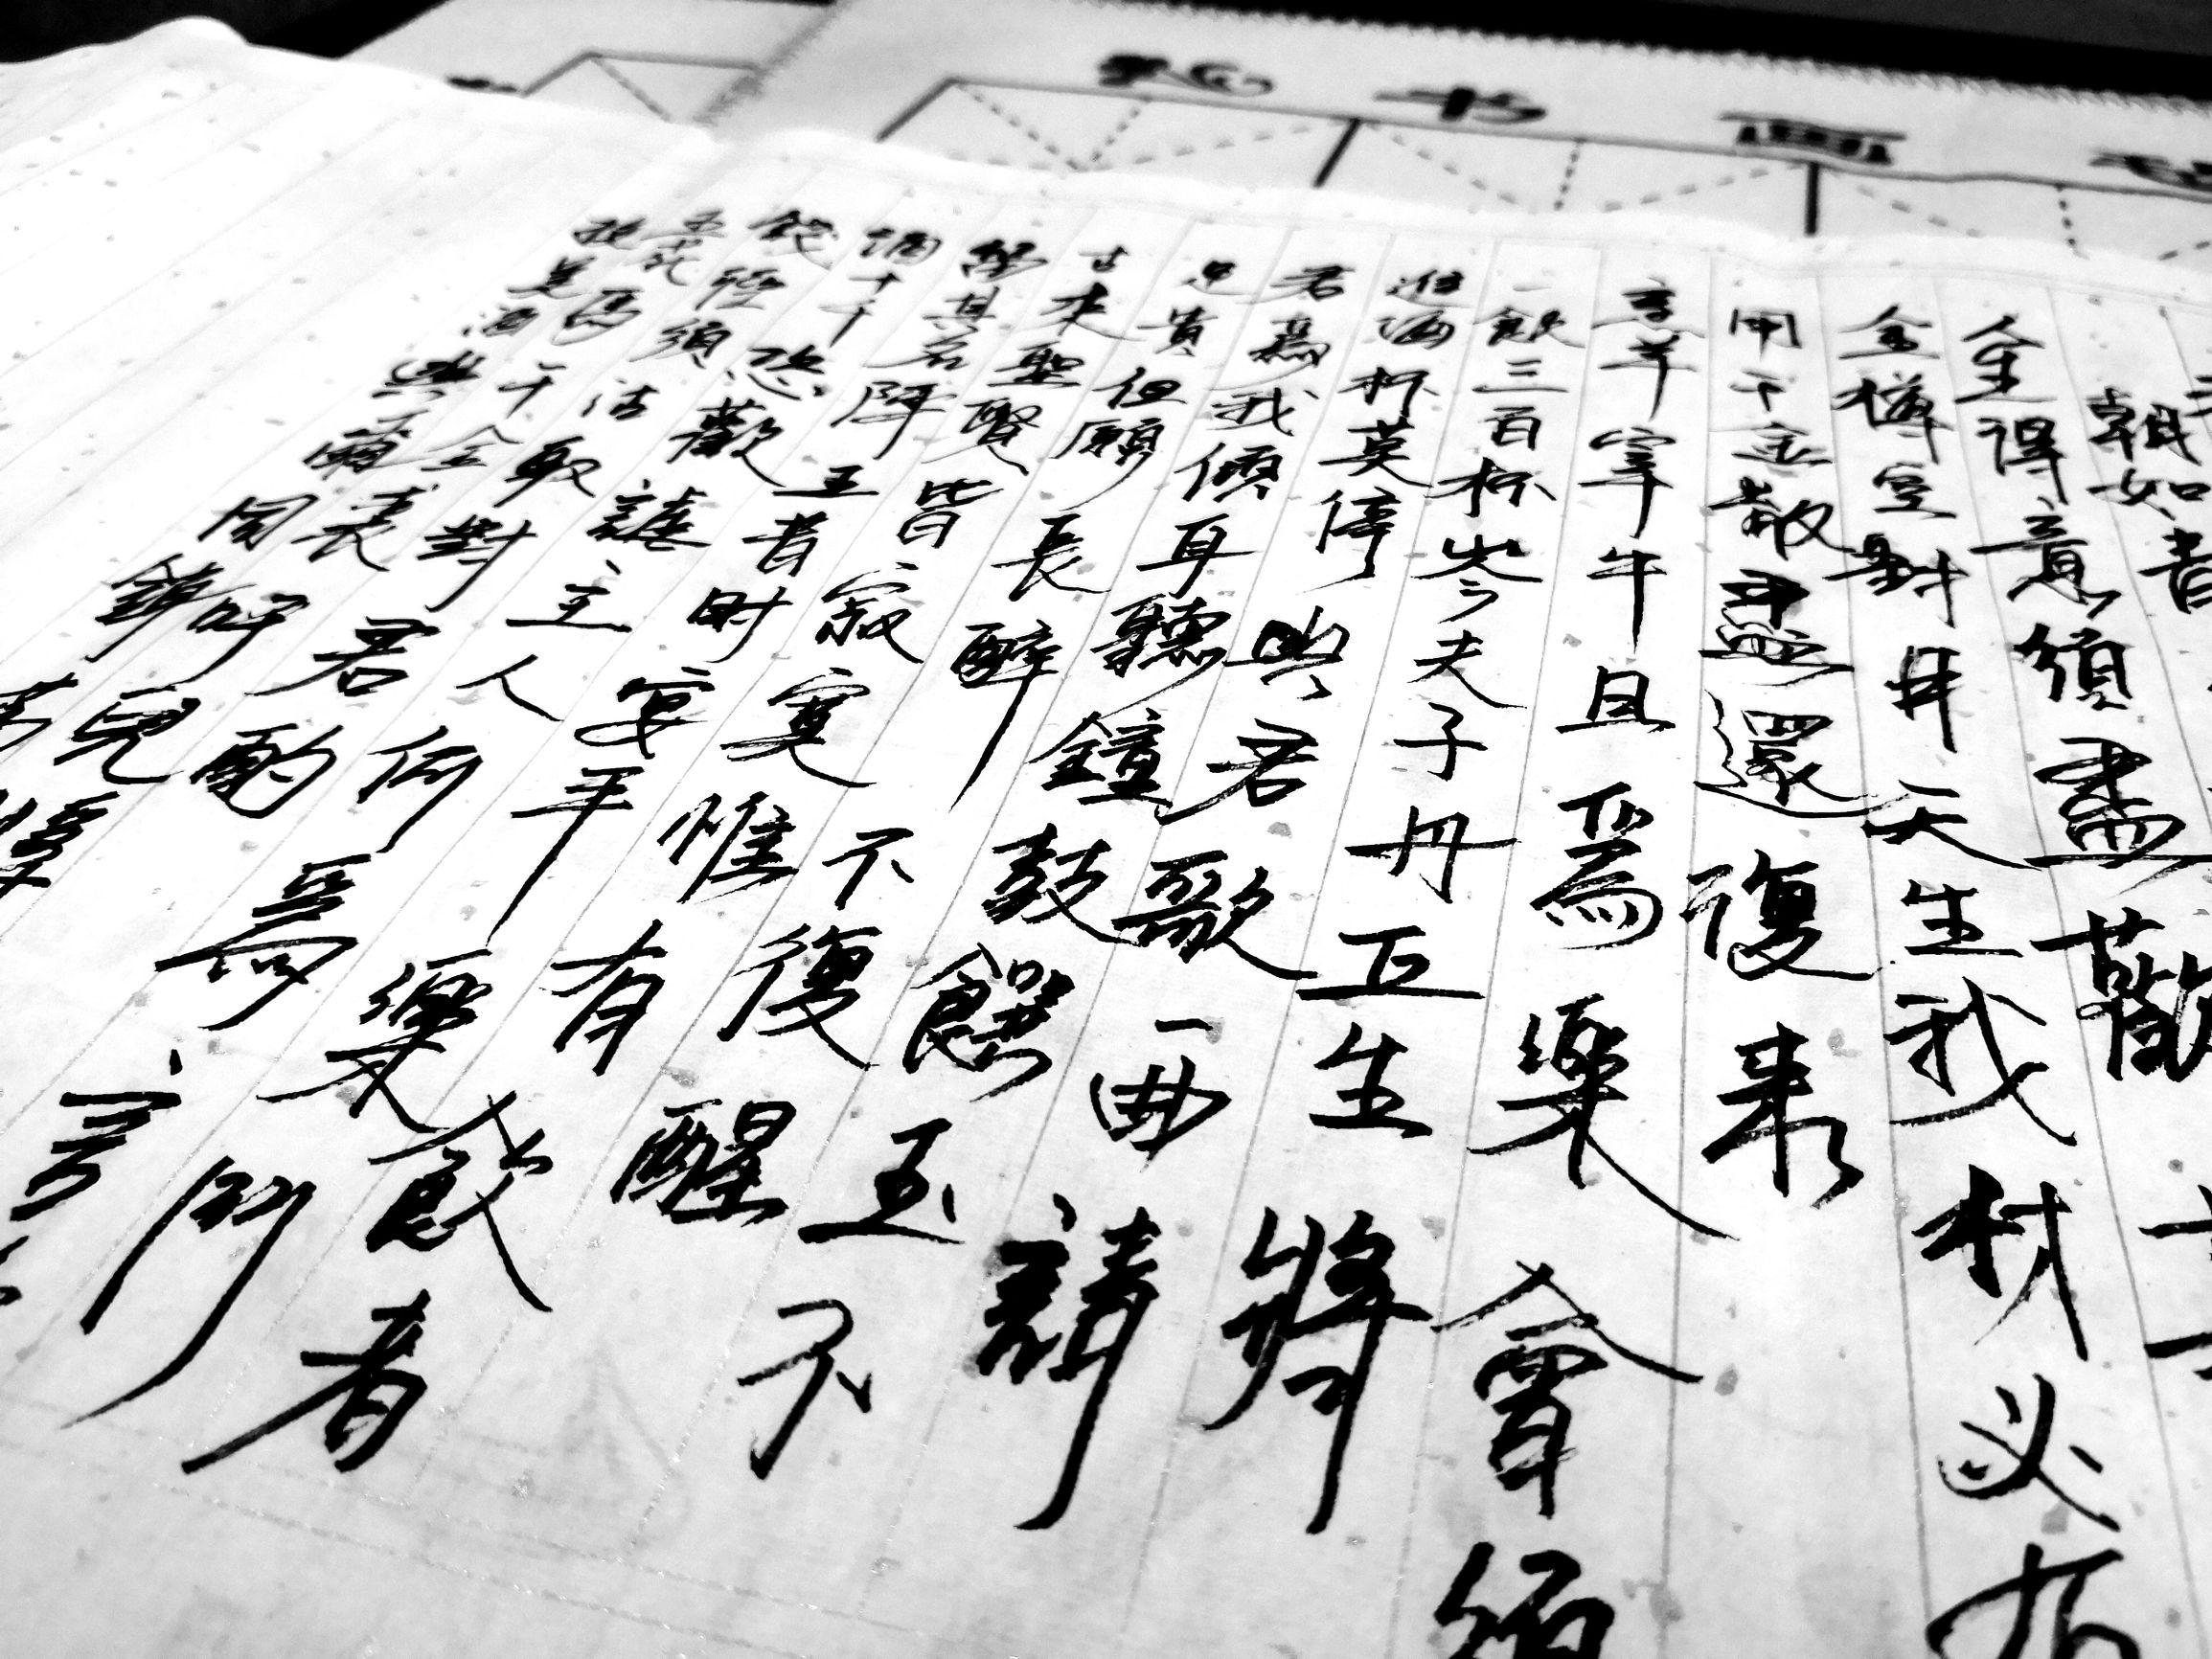 书画
朝如青
人生得意須盡歡
金樽空對月天生我材必有
用千金散盡還復来
烹羊宰牛且爲樂會須
一飲三百杯岑夫子丹丘生將
進酒杯莫停與君歌一曲請
君爲我傾耳聽鐘鼓饌玉不
足貴但願長醉不復醒
古來聖賢皆寂寞惟有飲者
留其名陳王昔時宴平樂鬥
酒十千恣歡謔主人何爲言
錢徑須沽取對君酌
五花馬千金裘呼兒
換美酒與爾同銷萬